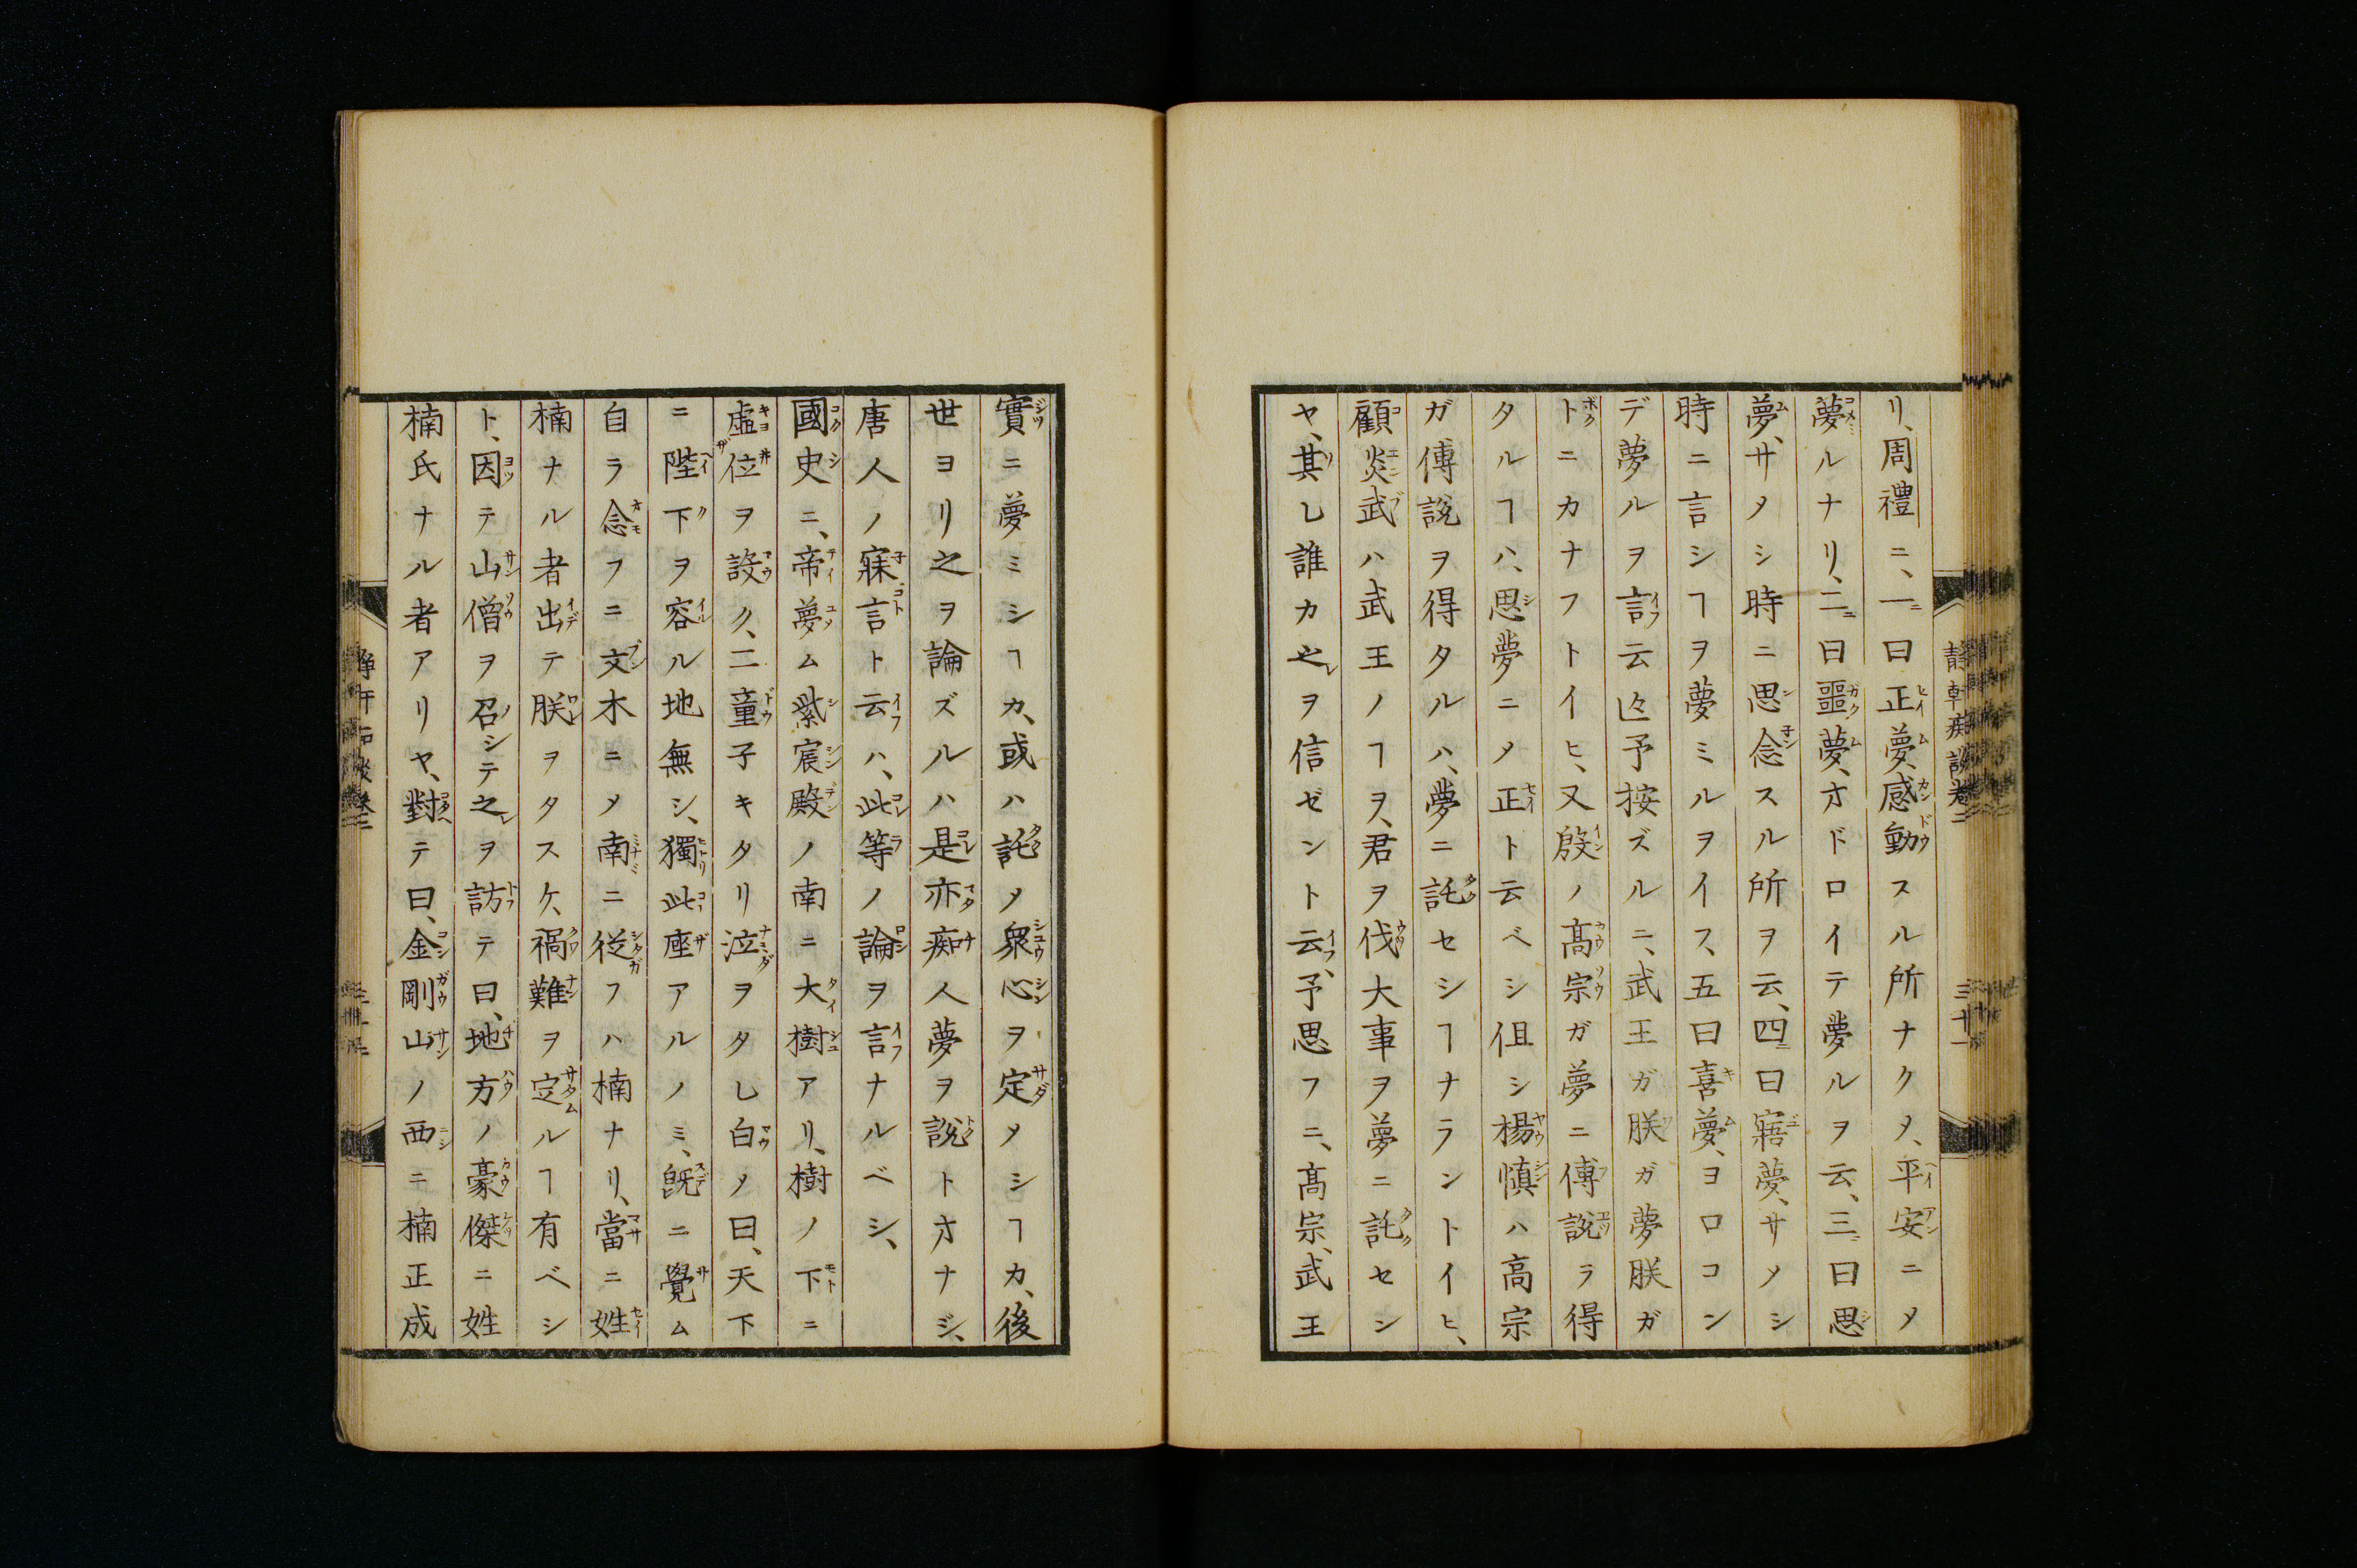 リ、周禮ニ、一ニ曰正夢、感動スル所ナクメ、平安ニメ
夢ルナリ、二ニ曰噩夢、オドロイテ夢ルヲ云、三ニ曰思
夢、サメシ時ニ思念スル所ヲ云、四ニ曰寤夢、サメシ
時ニ言シヿヲ夢ミルヲイフ、五曰喜夢、ヨロコン
デ夢ルヲ言云〻予按ズルニ、武王ガ朕ガ夢朕ガ
トニカナフトイヒ、又殷ノ髙宗ガ夢ニ傅説ラ得
タルヿハ、思夢ニメ正ト云ベシ伹シ楊慎ハ高宗
ガ傅説ヲ得タルハ、夢ニ託セシヿナラントイヒ、
顧炎武ハ武王ノヿヲ、君ヲ伐大事ヲ夢ニ託セシ
ヤ、其レ誰カ之ヲ信ゼント云、予思フニ、髙宗、武王
靜軒痴談卷二
三十一
實ニ夢ミシヿカ、或ハ託メ衆心ヲ定メシヿカ、後
世ヨリ之ヲ論ズルハ是亦痴人夢ヲ説トオナジ、
唐人ノ寐言ト云ハ、此等ノ論ヲ言ナルベシ、
國史ニ、帝夢ム紫宸殿ノ南ニ大樹アリ、樹ノ下ニ
虛位ヲ設ク、二童子キタリ泣ヲタレ白メ曰、天下
ニ陛下ヲ容ル地無シ、獨此座アルノミ、既ニ覺ム
自ラ念フニ文木ニメ南ニ従フハ楠ナリ、當ニ姓
楠ナル者出テ朕ヲタスケ、禍難ヲ定ルヿ有ベシ
ト、因テ山僧ヲ召シテ之ヲ訪テ曰、地方ノ豪傑ニ姓
楠氏ナル者アリヤ、對テ曰、金剛山ノ西ニ楠正成